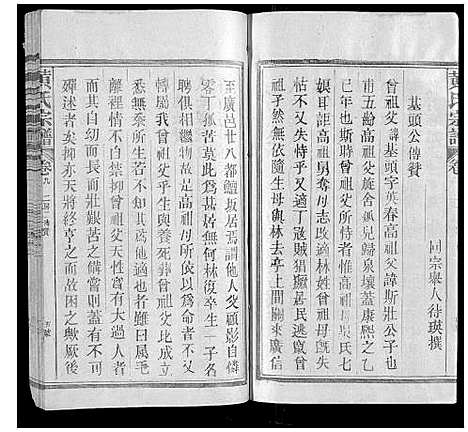 黃氏宗譜
卷
基頭公傳贊
同宗舉人待瑛撰
曾祖父諱基頭字英春高祖父諱斯壯公子也
甫五齡高祖父旋舍孤兒歸泉壤蓋康熙之乙
巳年也斯時曾祖父所恃者惟高祖母吳氏七
怙不又失恃乎又適丁寇賊猖獗居民逃竄曾
祖孑然無依隨生母與林去亭上間關來廣信
至廣邑廿八都饘坂居焉謂他人父顧影自憐
零丁孤苦莫此為甚居無何林復卒生一子名
聘俱相繼物故是高祖母所依以為命者不又
適曾祖父乎生與養死葬曾祖父比成立
悉無忝所生若不知其為他適也者雖曰屬毛
離裡情不自禁抑曾祖父天性蓋有大過人者
而其自幼而長而壯艱苦之備嘗則蓋有不可
殫述者矣抑亦天將終亨之而故困之歟厥後
黃氏宗譜
卷九